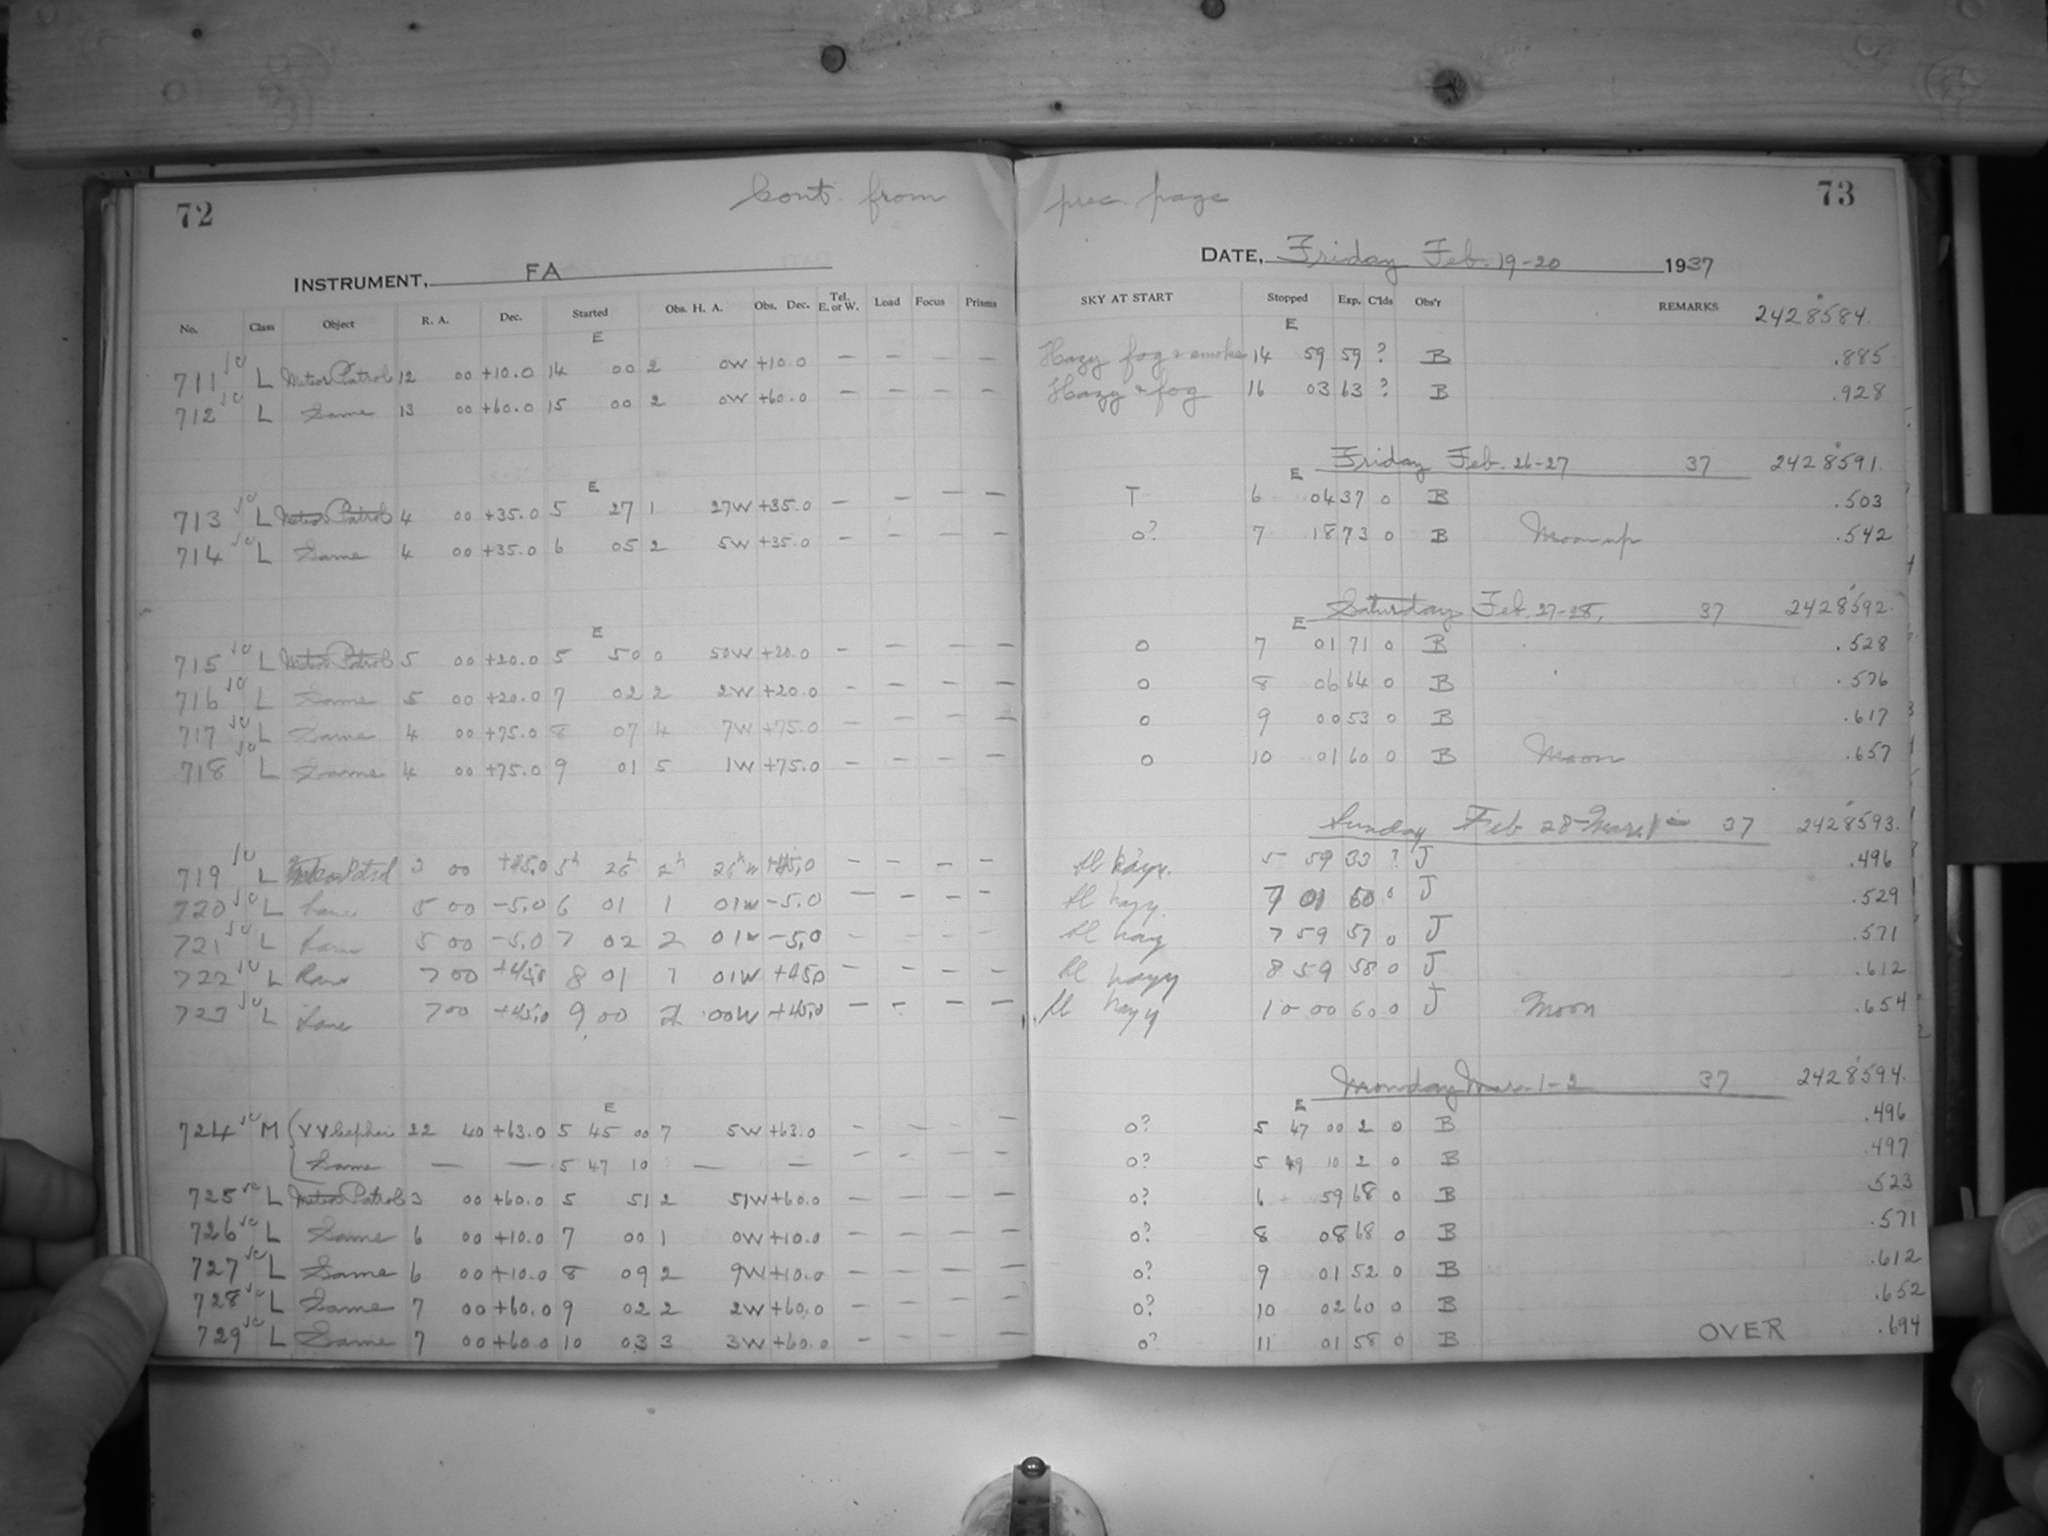 72
Cont. from prec. page
73
INSTRUMENT, FA
DATE, Friday Feb. 19-20 1937
No. Class Object R. A. Dec. Started Obs. H. A. Obs. Dec. Tel. E. or W. Load Focus Prisms SKY AT START Stopped Exp. C'lds Obs'r REMARKS 2428584.
E E
711 L Meteor Patrol 12 00 +10.0 14 00 2 0W +10.0 — — — — Hazy fog & smoke 14 59 59 ? B .885
712 L Same 13 00 +60.0 15 00 2 0W +60.0 — — — — Hazy & fog 16 03 63 ? B .928
Friday Feb. 26-27 37 2428591.
E E
713 L Meteor Patrol 4 00 +35.0 5 27 1 27W +35.0 — — — — T 6 04 37 0 B .503
714 L Same 4 00 +35.0 6 05 2 5W +35.0 — — — — 0? 7 18 73 0 B Moon up .542
Saturday Feb. 27-28, 37 2428592.
E E
715 L Meteor Patrol 5 00 +20.0 5 50 0 50W +20.0 — — — — 0 7 01 71 0 B .528
716 L Same 5 00 +20.0 7 02 2 2W +20.0 — — — — 0 8 06 64 0 B .576
717 L Same 4 00 +75.0 8 07 4 7W +75.0 — — — — 0 9 00 53 0 B .617
718 L Same 4 00 +75.0 9 01 5 1W +75.0 — — — — 0 10 01 60 0 B Moon .657
Sunday Feb 28-Mar. 1 37 2428593.
719 L Meteor Patrol 3 00 +45.0 5h 26 2h 26 W +45.0 — — — — Sl hazy. 5 59 33 ? J .496
720 L Same 5 00 -5.0 6 01 1 01W -5.0 — — — — Sl hazy. 7 01 60 0 J .529
721 L Same 5 00 -5.0 7 02 2 01W -5.0 — — — — Sl hazy 7 59 57 0 J .571
722 L Same 7 00 +45.0 8 01 1 01W +45.0 — — — — Sl hazy 8 59 58 0 J .612
723 L Same 7 00 +45.0 9 00 2 00W +45.0 — — — — Sl hazy 10 00 60 0 J Moon .654
Monday Mar. 1-2 37 2428594.
E E
724 M VV Cephei 22 40 +63.0 5 45 00 7 5W +63.0 — — — 0? 5 47 00 2 0 B .496
Same — — 5 47 10 — — — — — — 0? 5 49 10 2 0 B .497
725 L Meteor Patrol 3 00 +60.0 5 51 2 51W +60.0 — — — — 0? 6 59 68 0 B .523
726 L Same 6 00 +10.0 7 00 1 0W +10.0 — — — — 0? 8 08 68 0 B .571
727 L Same 6 00 +10.0 8 09 2 9W +10.0 — — — — 0? 9 01 52 0 B .612
728 L Same 7 00 +60.0 9 02 2 2W +60.0 — — — — 0? 10 02 60 0 B .652
729 L Same 7 00 +60.0 10 03 3 3W +60.0 — — — — 0? 11 01 58 0 B OVER .694